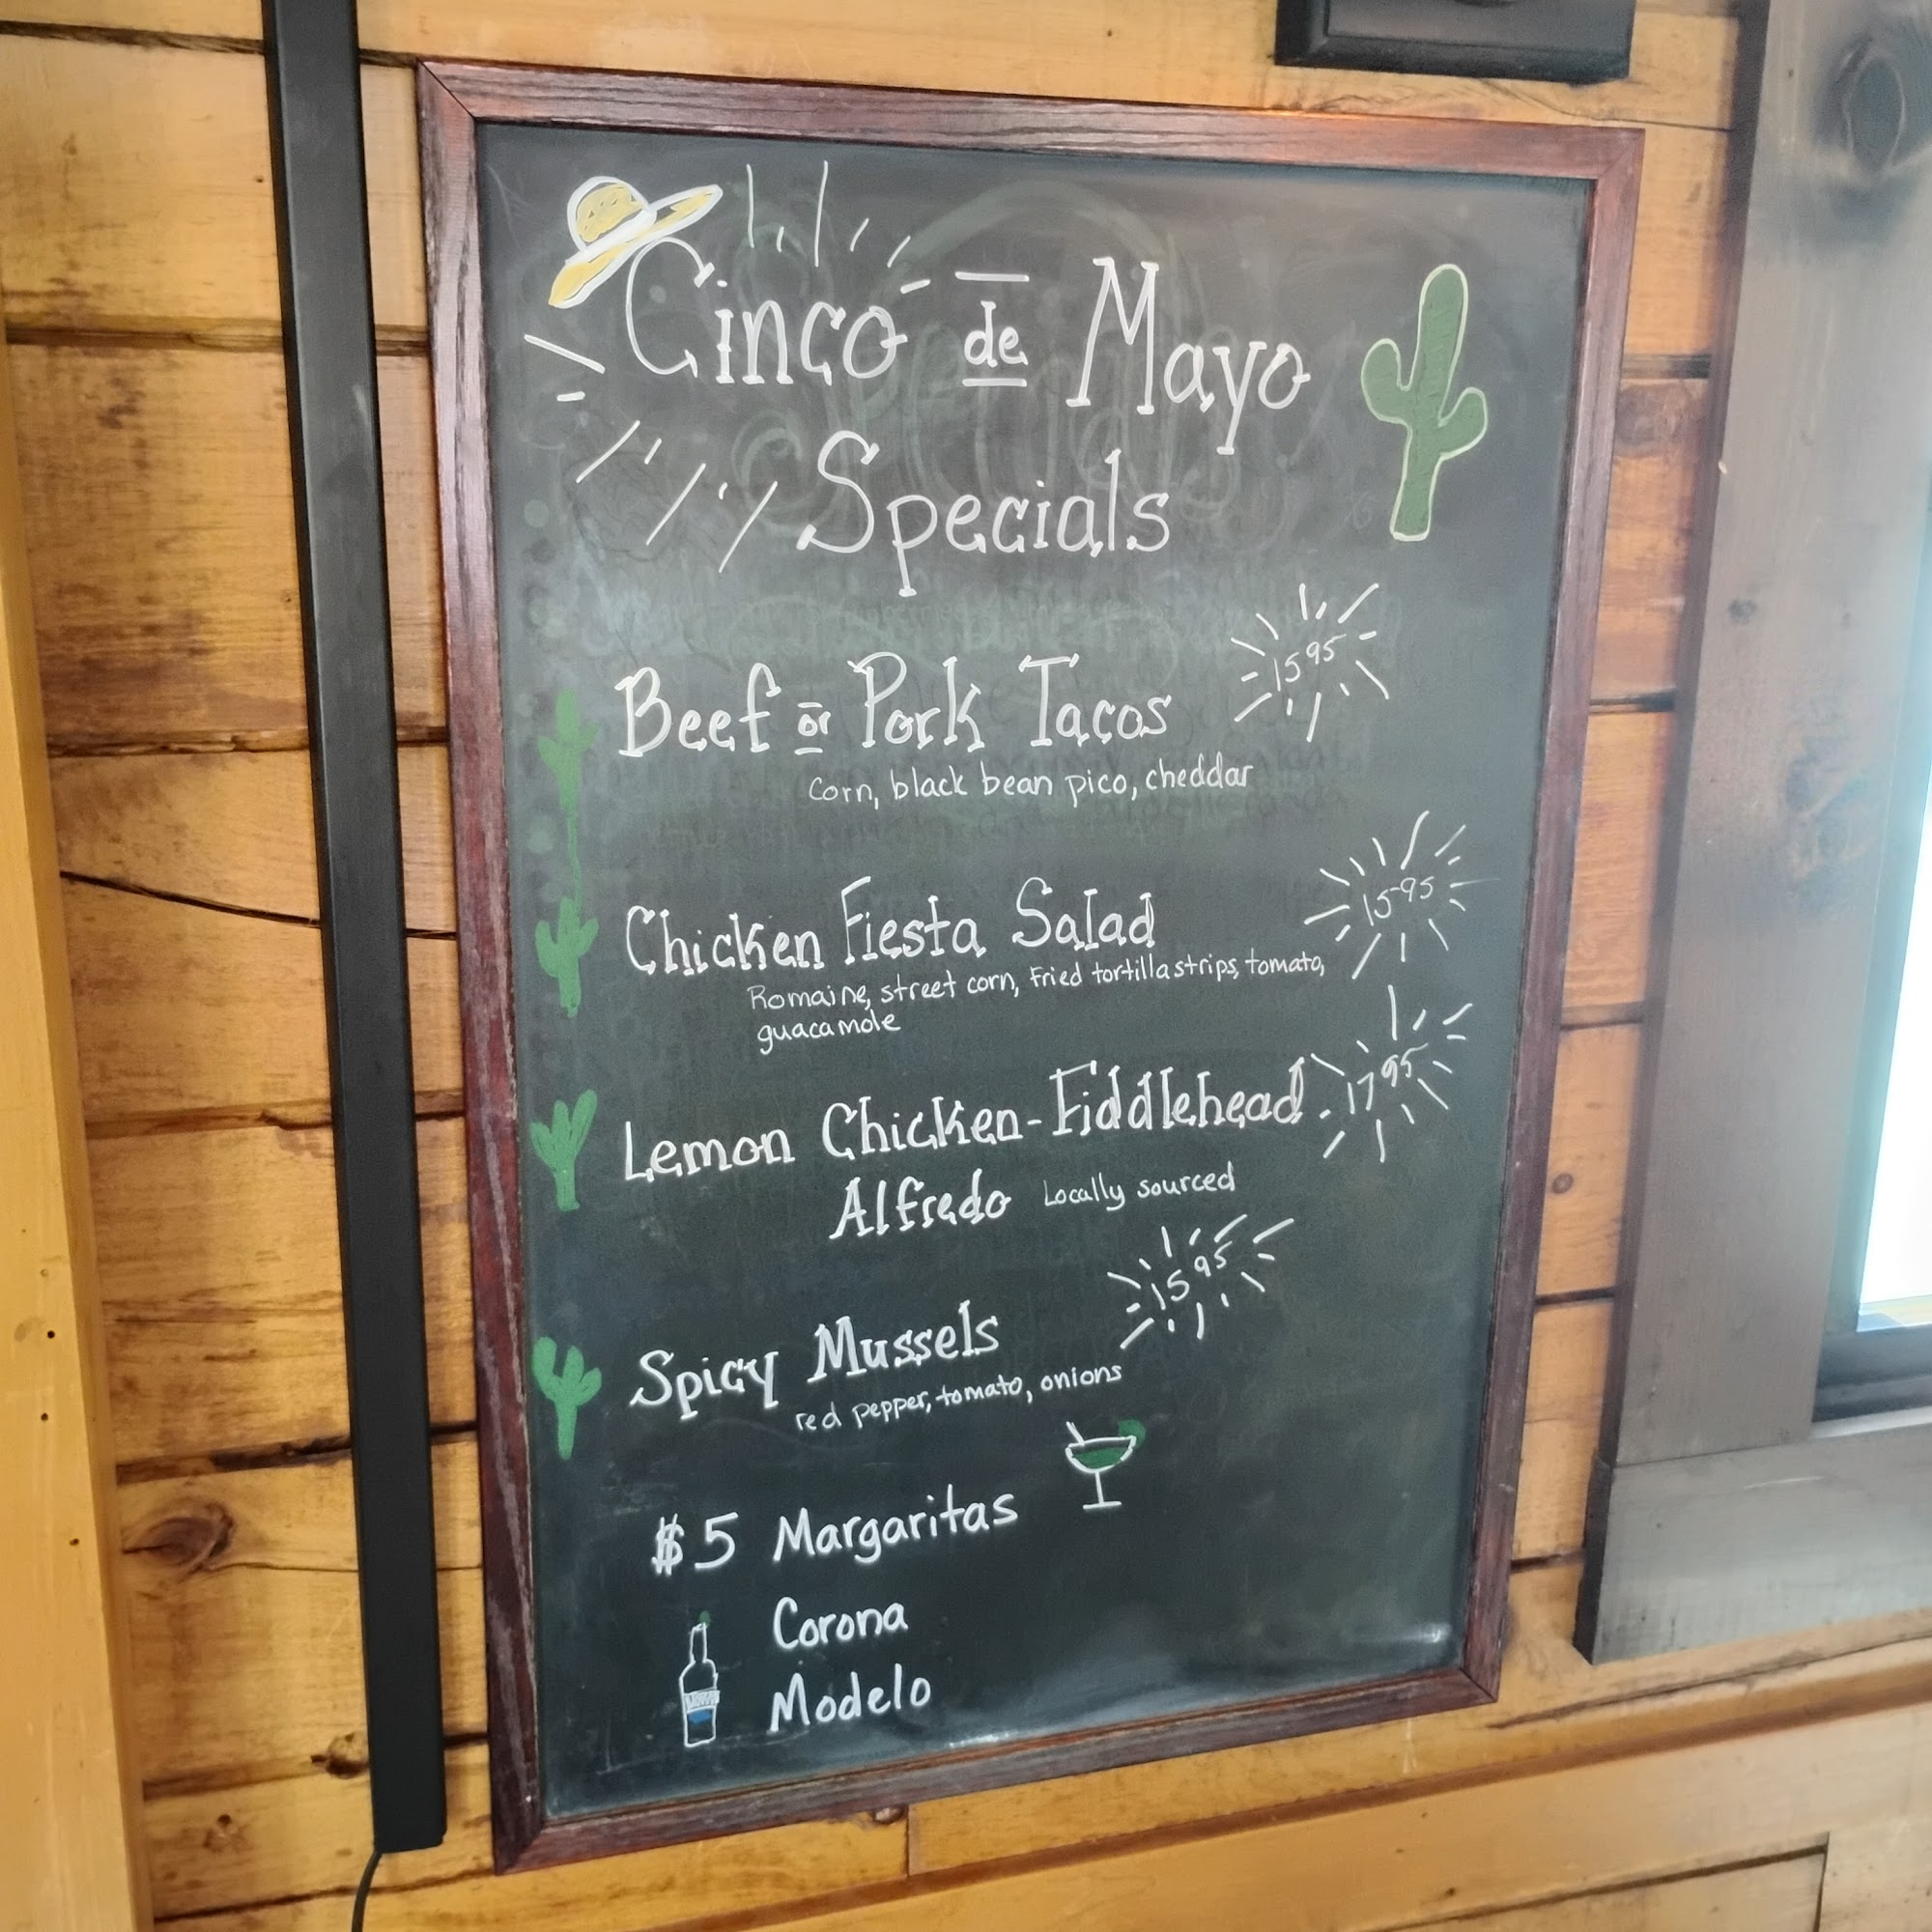 Cinco de Mayo
Specials
Beef or Pork Tacos 15 95
Corn, black bean pico, cheddar
Chicken Fiesta Salad 15 95
Romaine, street corn, Fried tortilla strips, tomato,
guacamole
Lemon Chicken-Fiddlehead 17 95
Alfredo Locally sourced
Spicy Mussels 15 95
red pepper, tomato, onions
$5 Margaritas
Corona
Modelo